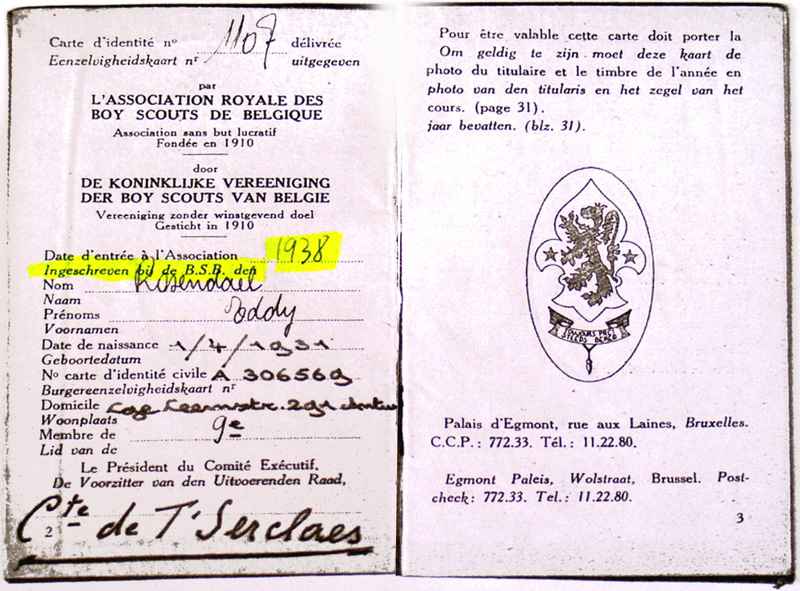 Carte d'identité nº 1107 délivrée
Eenzelvigheidskaart nr uitgegeven
par
L'ASSOCIATION ROYALE DES
BOY SCOUTS DE BELGIQUE
Association sans but lucratif
Fondée en 1910
door
DE KONINKLIJKE VEREENIGING
DER BOY SCOUTS VAN BELGIE
Vereeniging zonder winstgevend doel
Gesticht in 1910
Date d'entrée à l'Association 1938
Ingeschreven bij de B.S.B. den
Nom Rosendael
Naam
Prénoms Eddy
Voornamen
Date de naissance 1/4/1931
Geboortedatum
Nº carte d'identité civile A 306569
Burgereenzelvigheidskaart nr
Domicile
Woonplaats
Membre de 9e
Lid van de
Le Président du Comité Exécutif,
De Voorzitter van den Uitvoerenden Raad,
Cte de T'Serclaes
2
Pour être valable cette carte doit porter la
Om geldig te zijn moet deze kaart de
photo du titulaire et le timbre de l'année en
photo van den titularis en het zegel van het
cours. (page 31).
jaar bevatten. (blz. 31).
TOUJOURS PRET
STEEDS BEREID
Palais d'Egmont, rue aux Laines, Bruxelles.
C.C.P.: 772.33. Tél.: 11.22.80.
Egmont Paleis, Wolstraat, Brussel. Post-
check: 772.33. Tel.: 11.22.80.
3